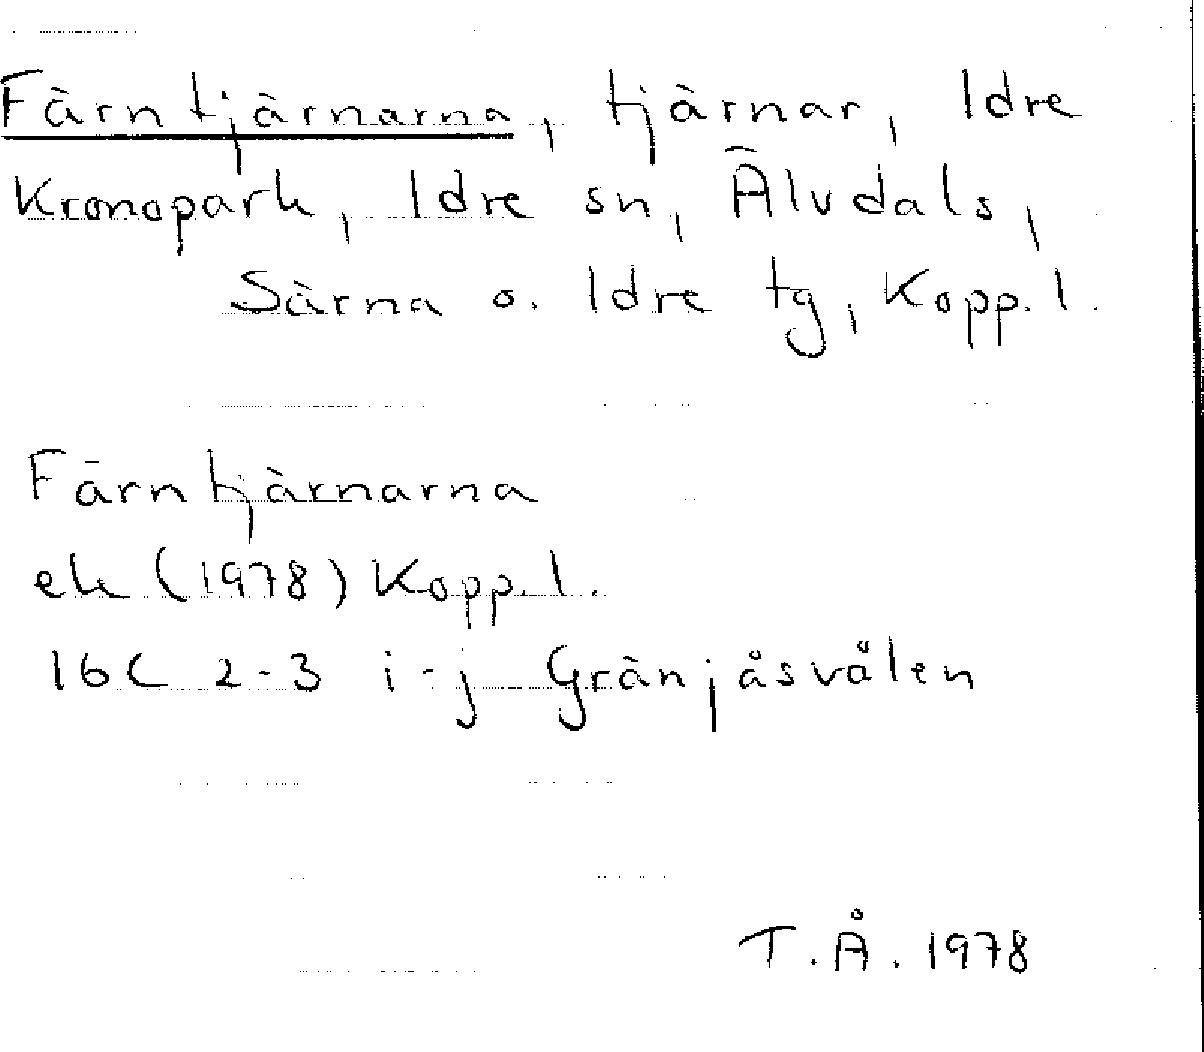 Färntjärnarna, tjärnar, Idre
Kronopark, Idre sn, Älvdals,
Särna o. Idre tg, Kopp. l.
Färntjärnarna
ek (1978) Kopp. l.
16C 2-3 i-j Gränjåsvålen
T.Å. 1978